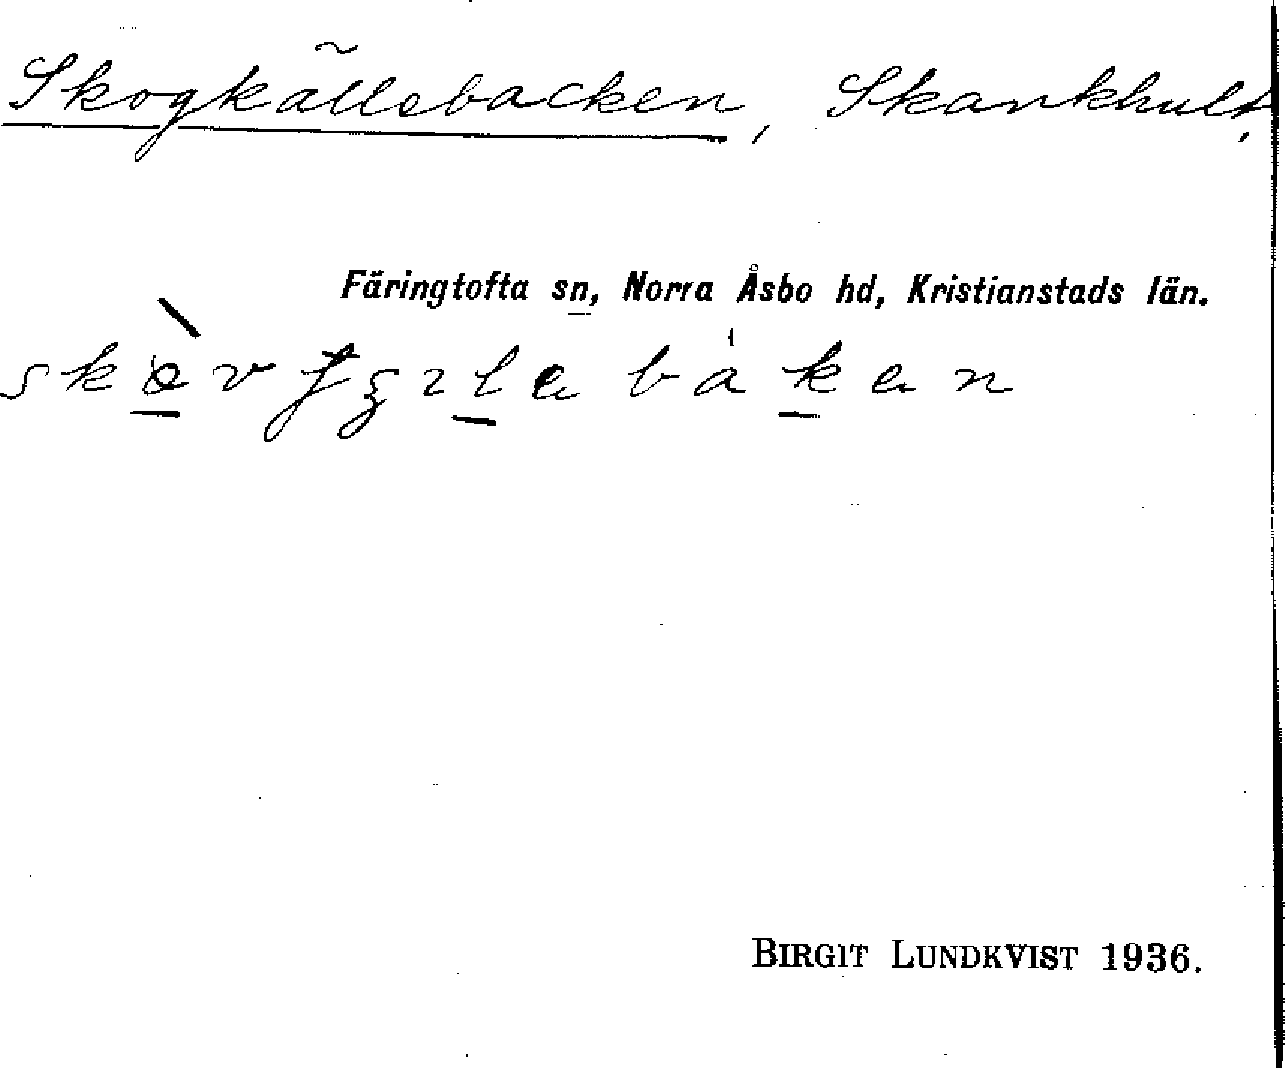 Skogkällebacken, Skankhult,
Färingtofta sn, Norra Åsbo hd, Kristianstads län.
BIRGIT LUNDKVIST 1936.